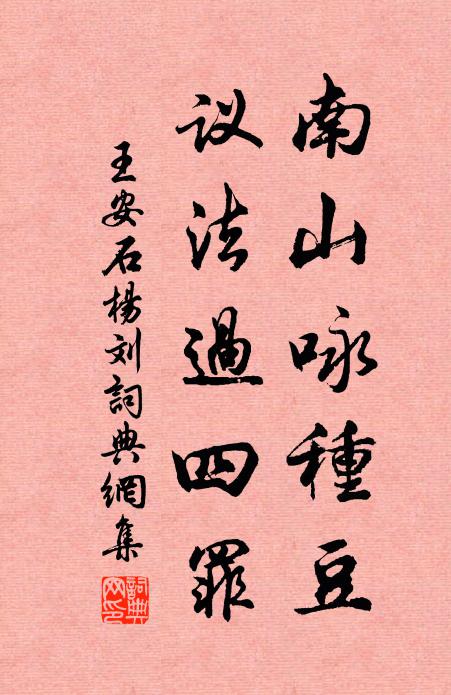 南山咏種豆
议法過四罪
王安石楊刘詞典網集
詞典网印